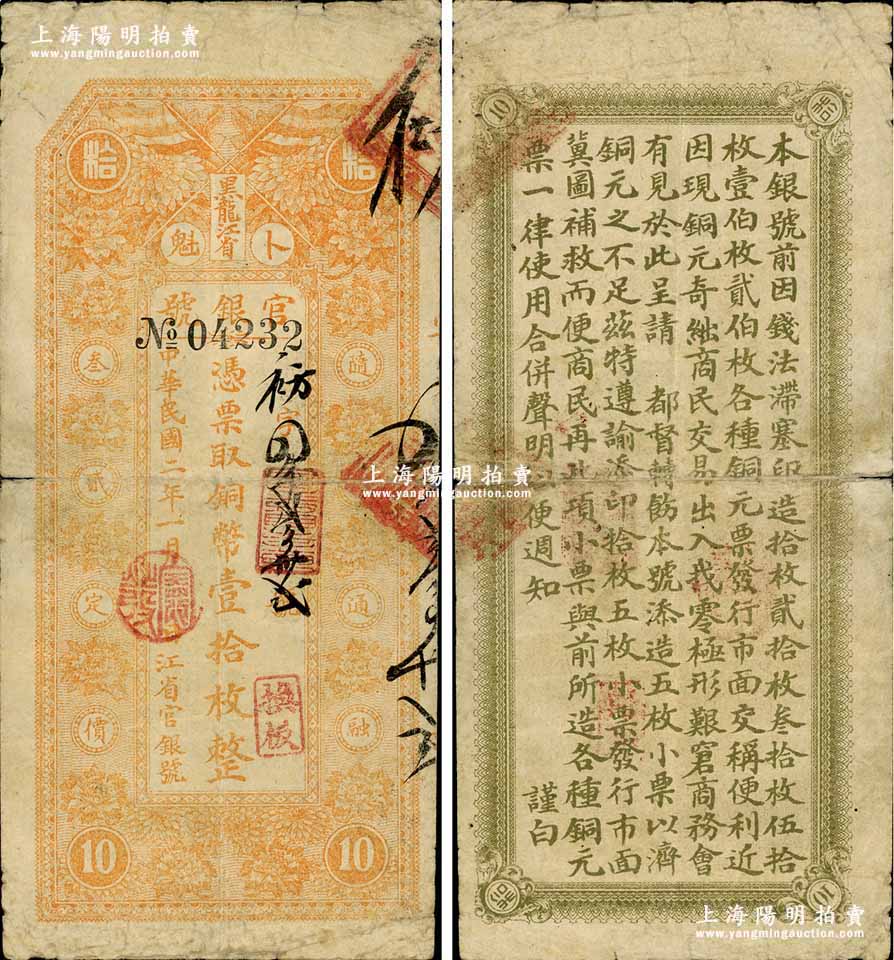 上海陽明拍賣
www.yangmingauction.com
拾
拾
黑龍江省
卜
魁
官
銀
號
№04232
憑票取銅幣壹拾枚整
中華民國二年一月
江省官銀號
隨
通
融
叁
貳
定
價
換板
10
10
上海陽明拍賣
www.yangmingauction.com
10
本銀號前因錢法滯塞印造拾枚貳拾枚叁拾枚伍拾
枚壹伯枚貳伯枚各種銅元票發行市面交稱便利近
因現銅元奇絀商民交易出入找零極形艱窘商務會
有見於此呈請 都督轉飭本號添造五枚小票以濟
銅元之不足茲特遵諭添印拾枚五枚小票發行市面
冀圖補救而便商民再此項小票與前所造各種銅元
票一律使用合併聲明便週知
謹白
上海陽明拍賣
www.yangmingauction.com